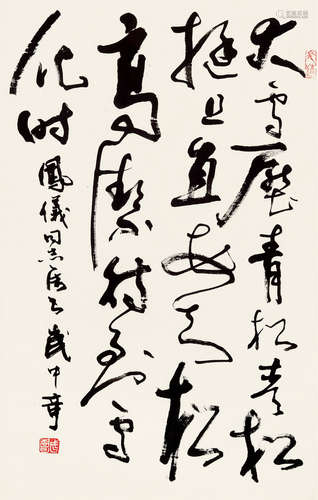 大雪壓青松青松
挺且直要知松
高潔待到雪
化时 鳳儀同志属 武中奇